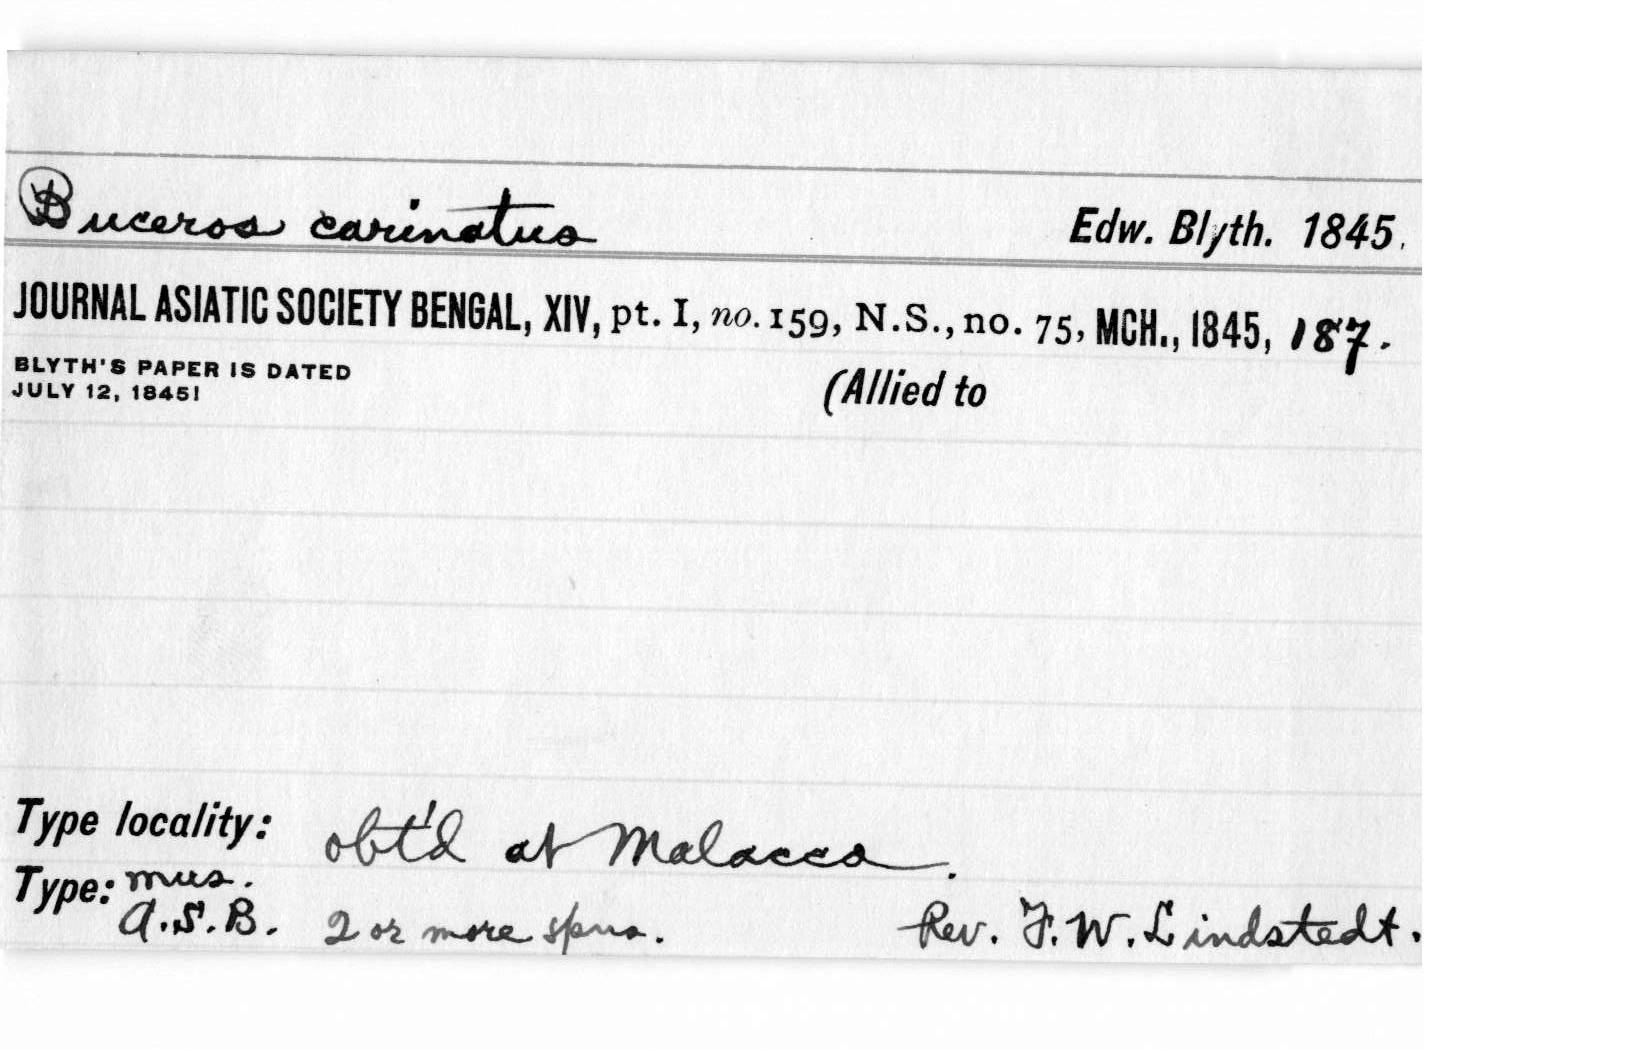 Buceros carinatus Edw. Blyth. 1845.
JOURNAL ASIATIC SOCIETY BENGAL, XIV, pt. I, no. 159, N.S., no. 75, MCH., 1845, 187.
BLYTH'S PAPER IS DATED
JULY 12, 1845!
(Allied to
Type locality: obt'd at Malacca.
Type: mus.
A.S.B. 2 or more spns. Rev. F. W. Lindstedt.